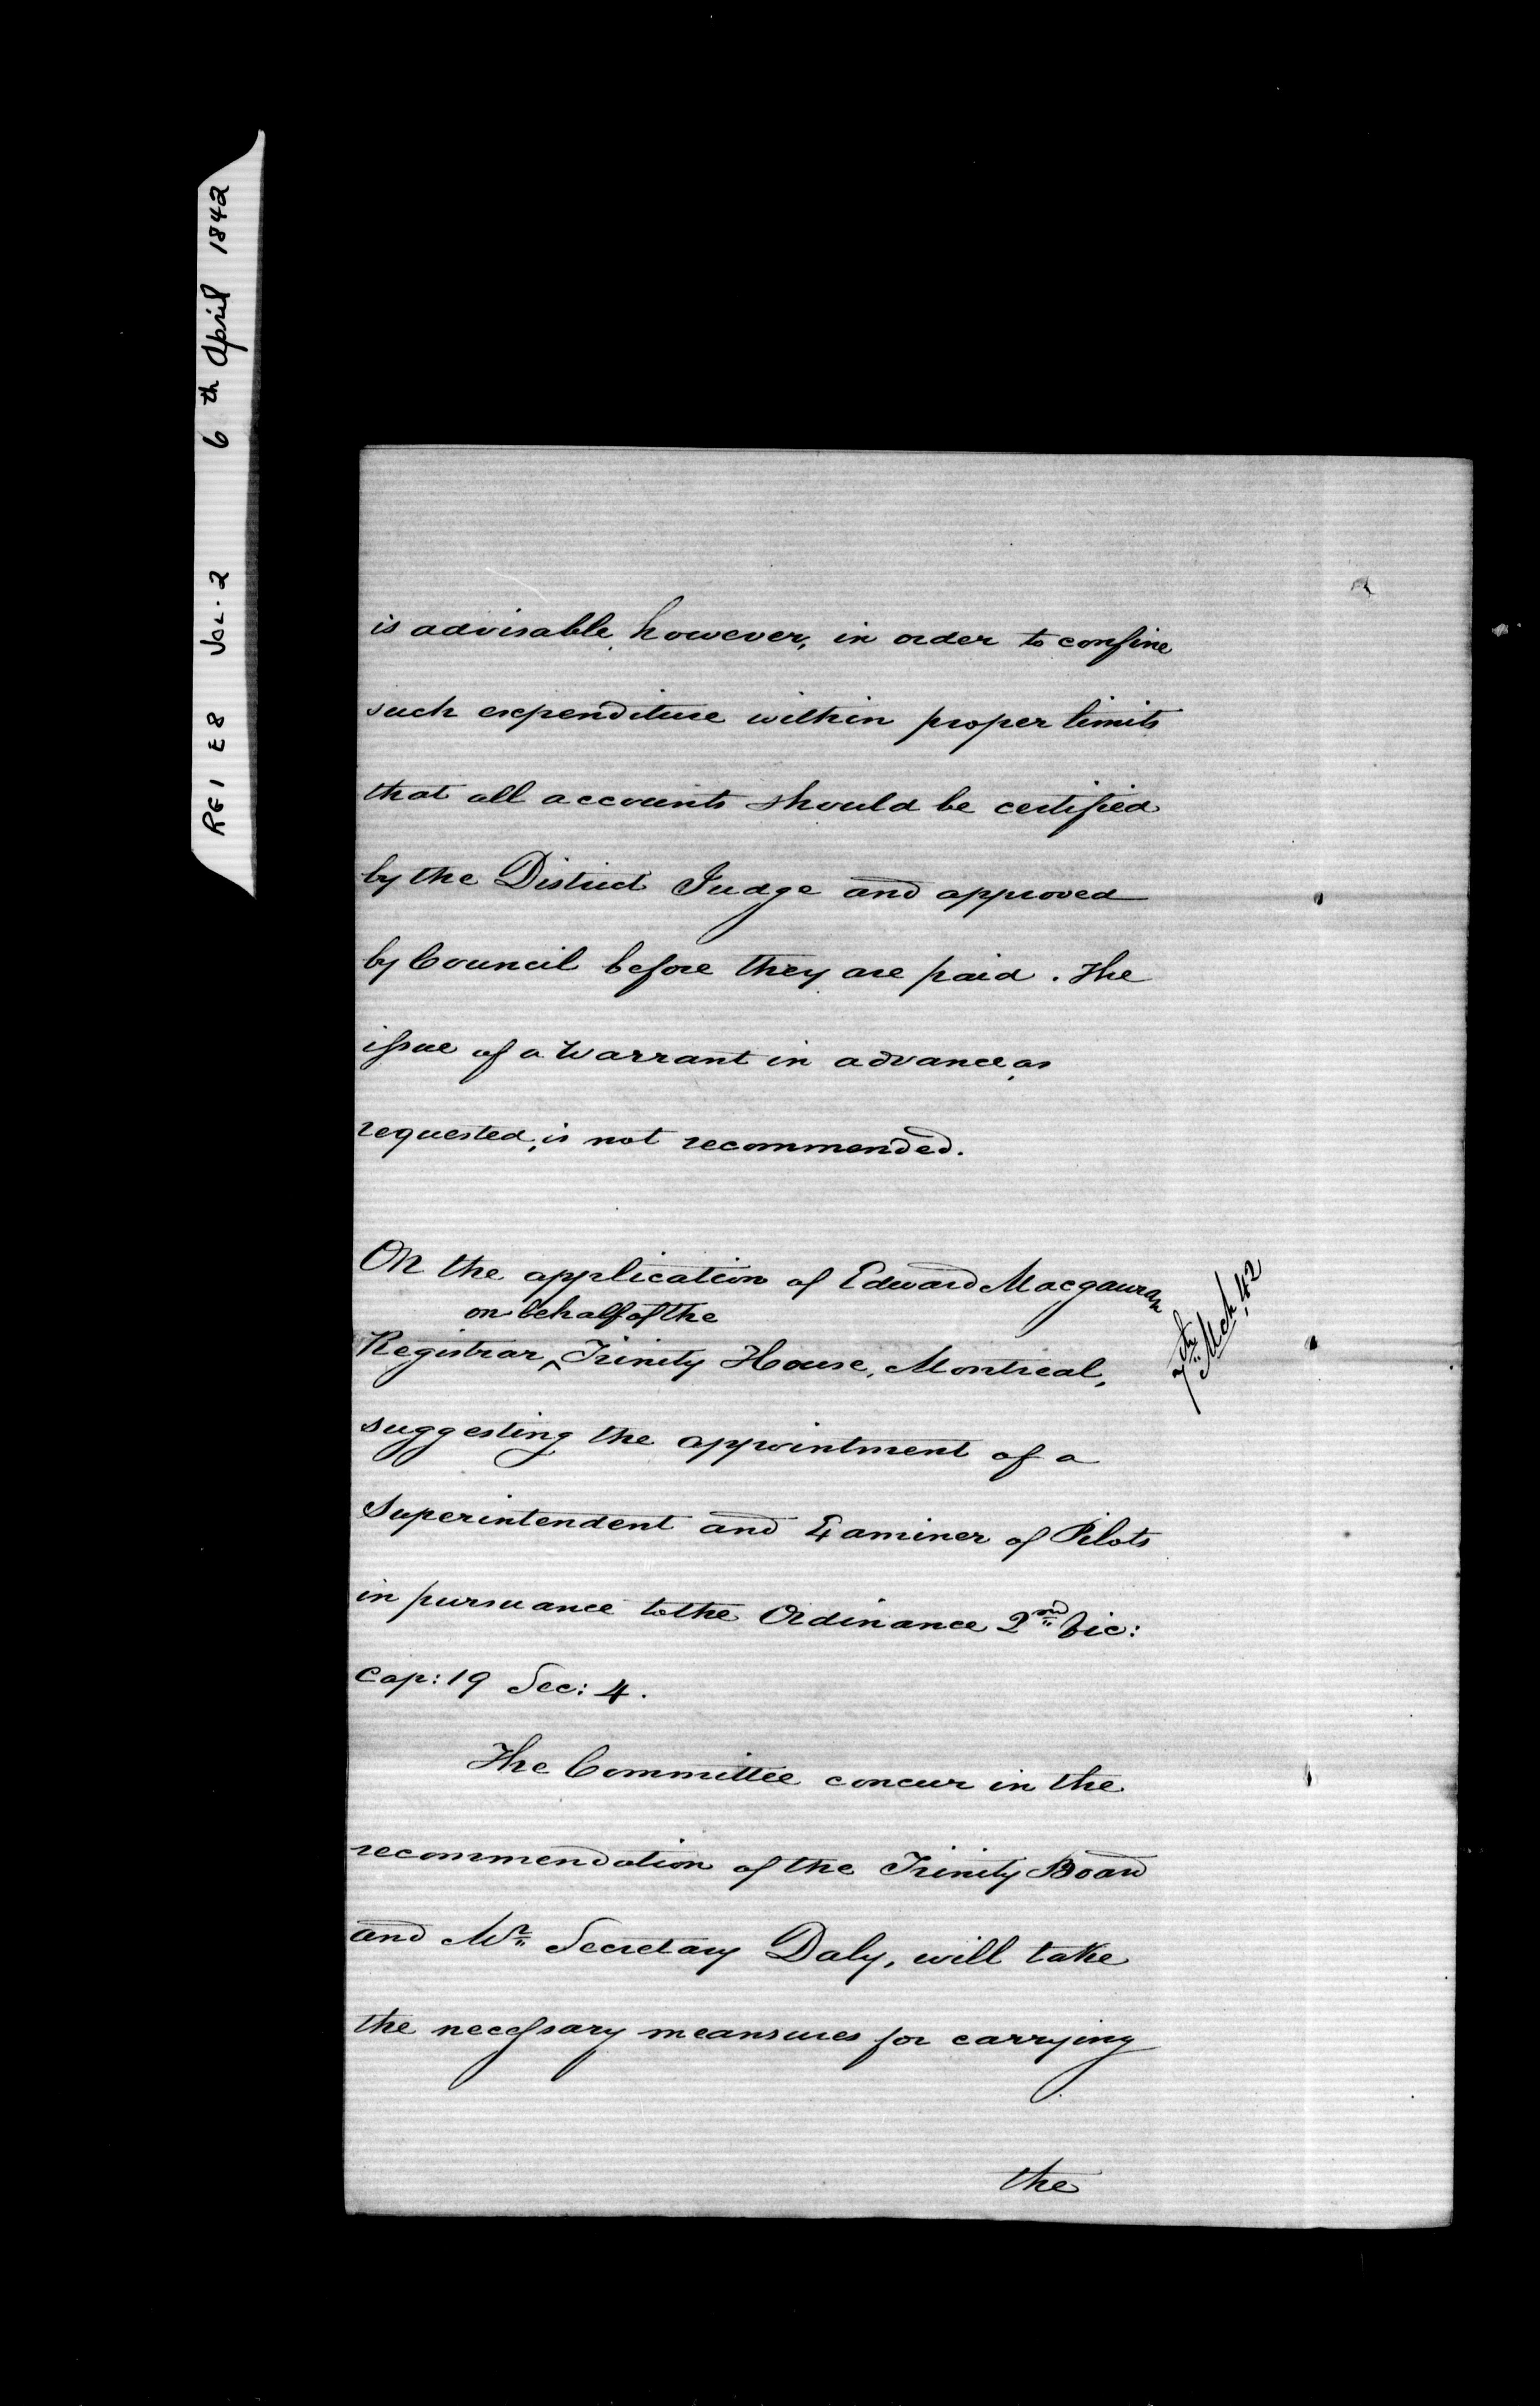 RG1 E8 VOL. 2 6th April 1842
is advisable, however, in order to confine
such expenditure within proper limits
that all accounts should be certified
by the District Judge and approved
by Council before they are paid. The
issue of a Warrant in advance, as
requested, is not recommended.
On the application of Edward Macgauran
on behalf of the
Registrar, ^ Trinity House, Montreal,
7th Mch '42
suggesting the appointment of a
Superintendent and Examiner of Pilots
in pursuance to the Ordinance 2nd Vic:
Cap: 19 Sec: 4.
The Committee concur in the
recommendation of the Trinity Board
and Mr Secretary Daly, will take
the necessary meansures for carrying
the